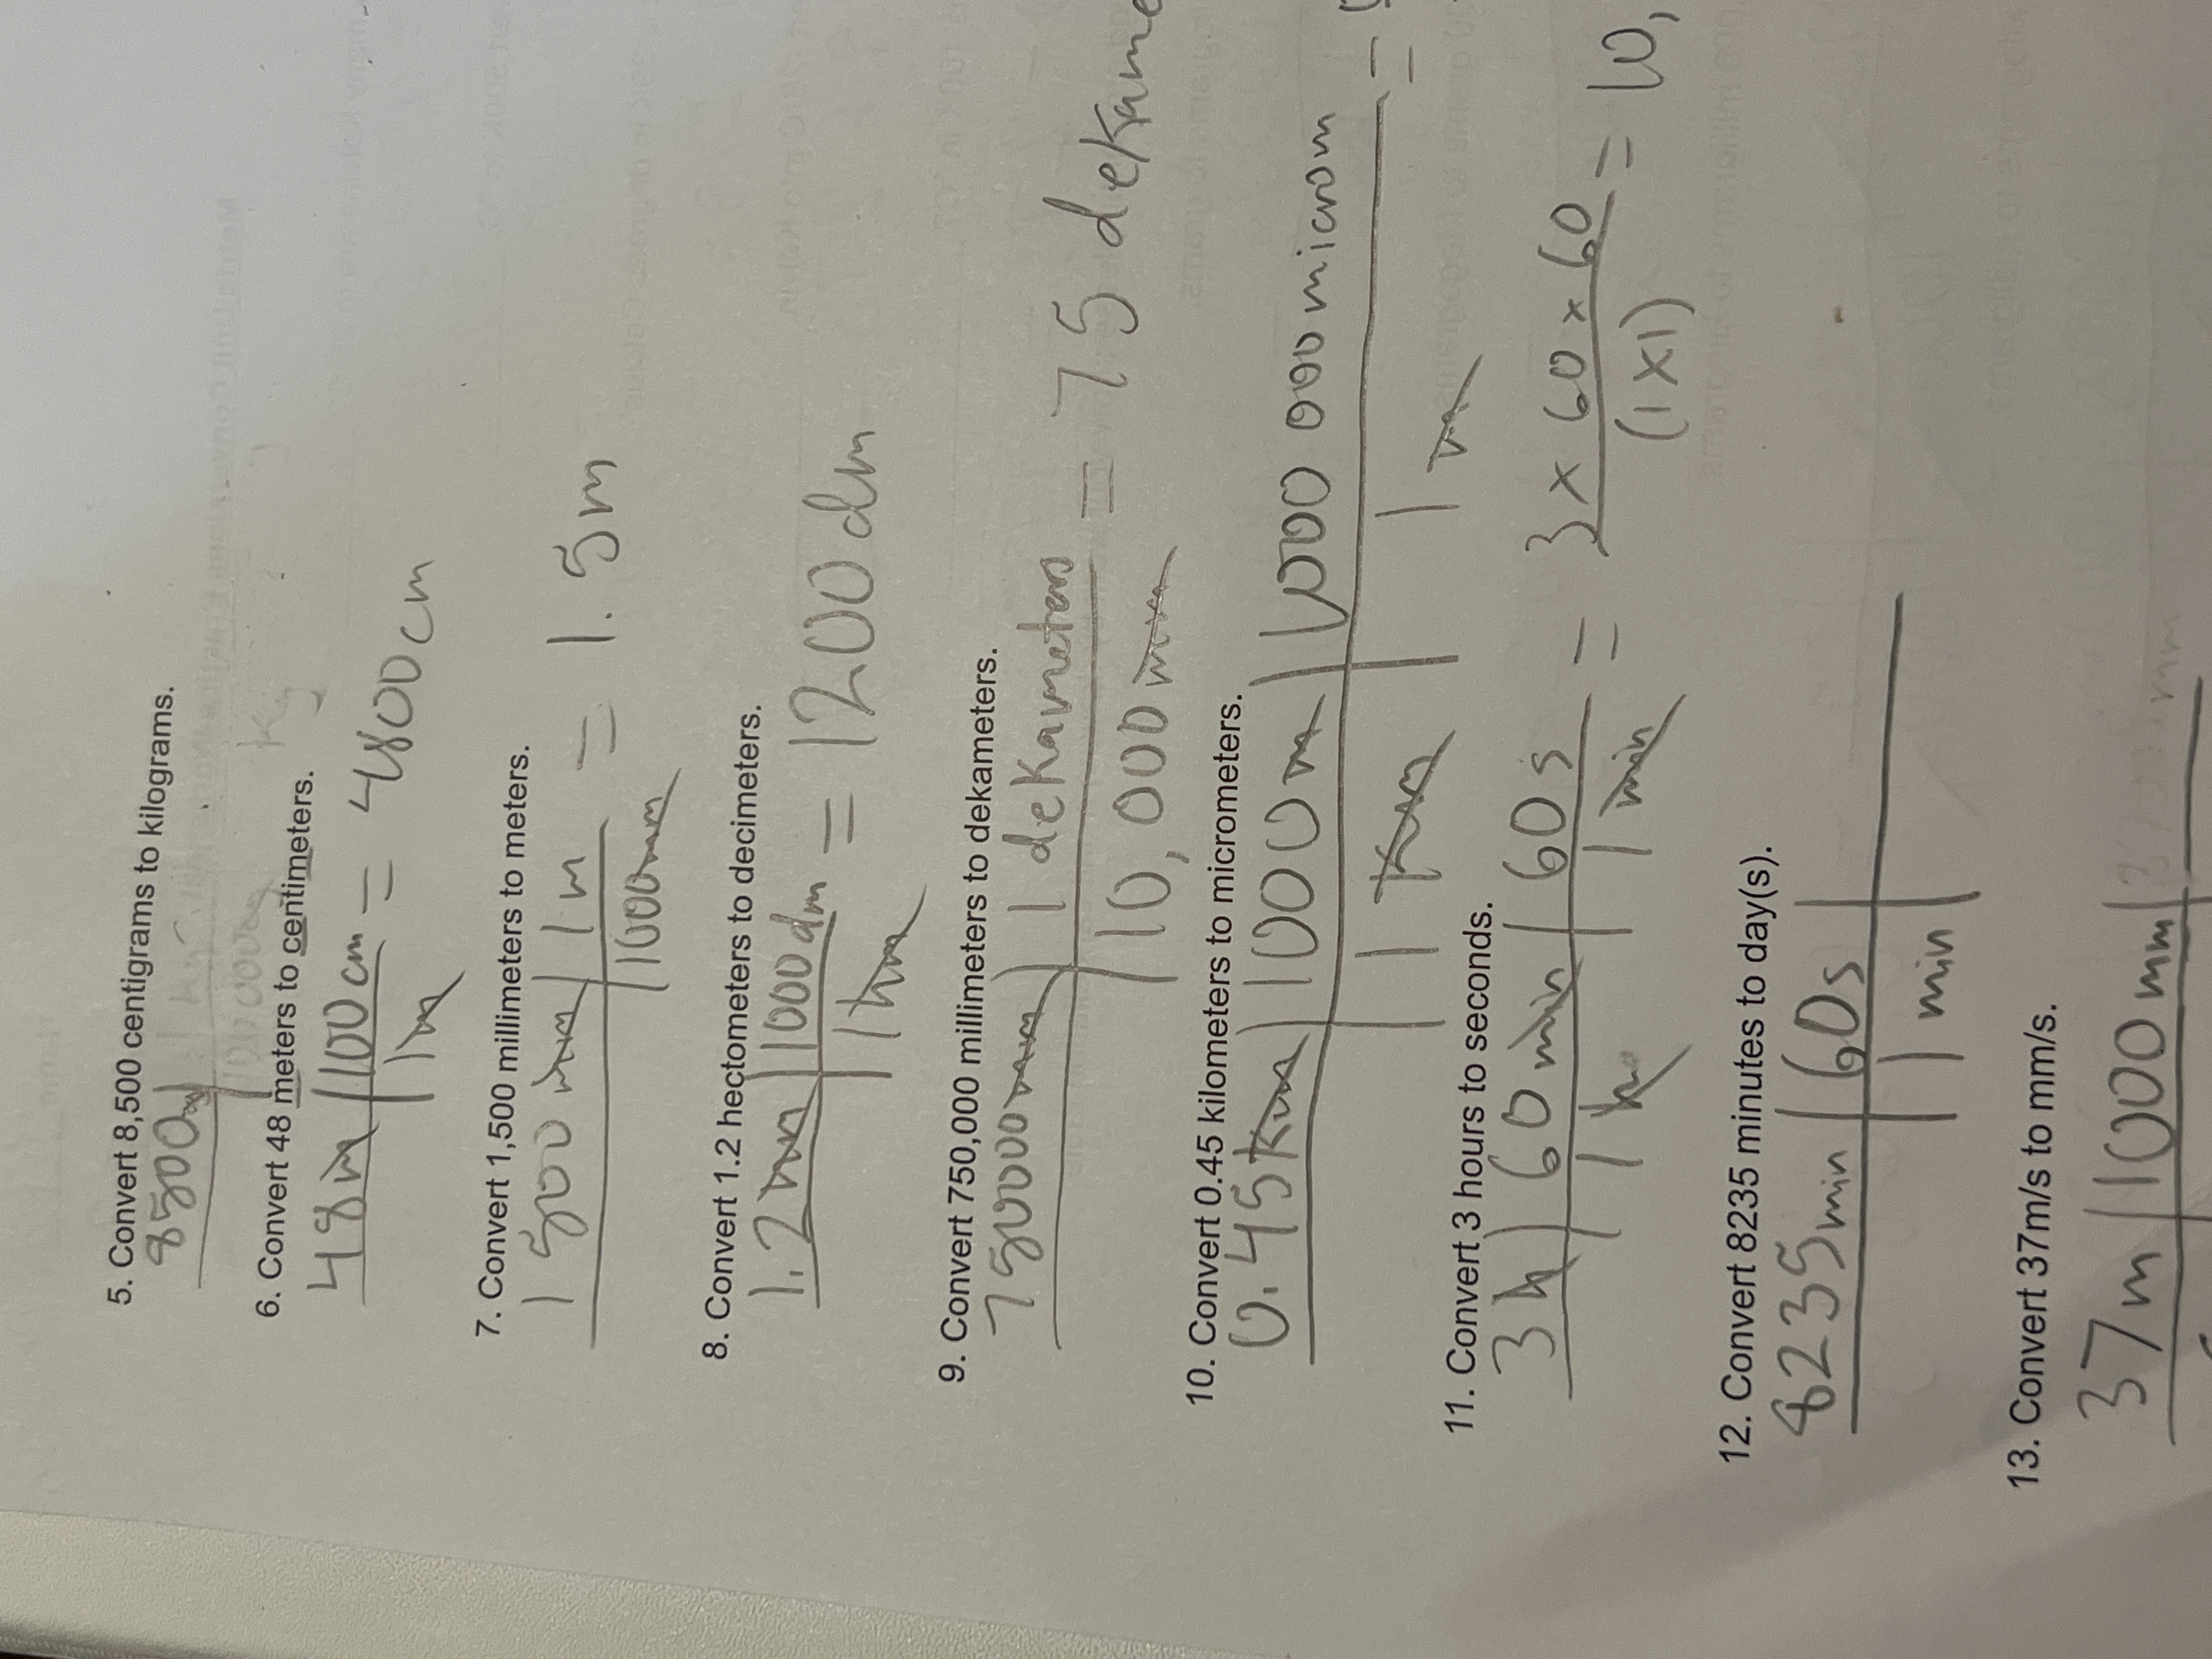 5. Convert 8,500 centigrams to kilograms.
8500cg 1 kg
100000cg Kg
6. Convert 48 meters to centimeters.
48m 100 cm = 4800 cm
1m
7. Convert 1,500 millimeters to meters.
1500 mm 1m = 1.5m
1000mm
8. Convert 1.2 hectometers to decimeters.
1.2hm 1000 dm = 1200 dm
1hm
9. Convert 750,000 millimeters to dekameters.
750000mm 1 dekameters = 75 dekame
10,000 mm
10. Convert 0.45 kilometers to micrometers.
0.45Km 1000m 1000 000 microm =
1 Km 1 m
11. Convert 3 hours to seconds.
3h 60 min 60 s = 3 x 60 x 60 = 10,
1 h 1 min (1x1)
12. Convert 8235 minutes to day(s).
8235min 60s
1 min
13. Convert 37m/s to mm/s.
37m 1000 mm